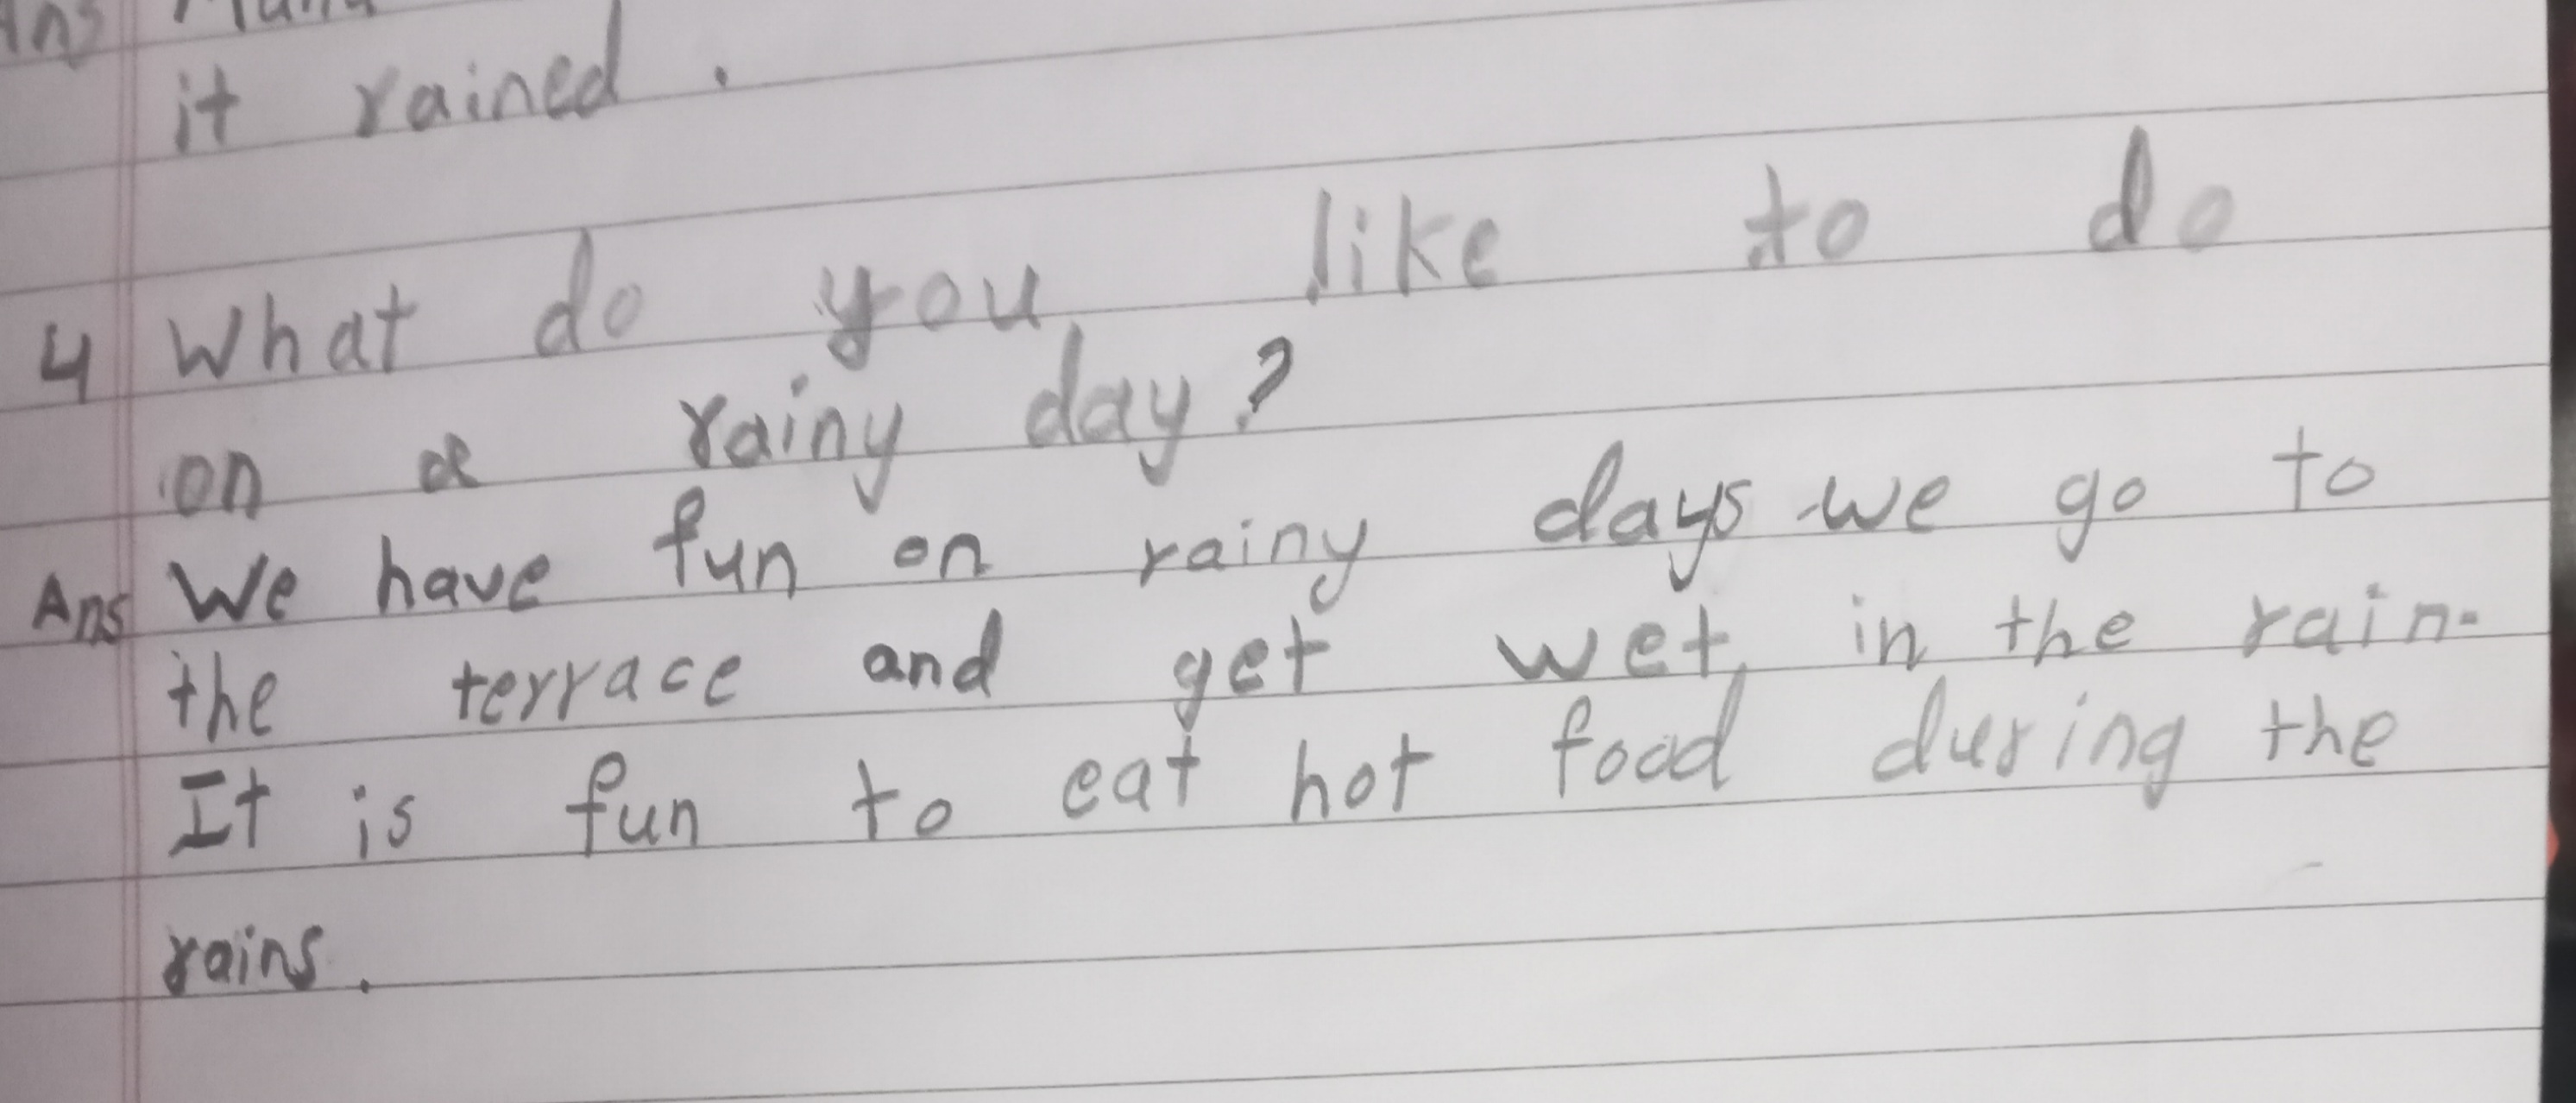 Ans
it rained.
4 What do you like to do
on a rainy day?
Ans We have fun on rainy days we go to
the terrace and get wet in the rain.
It is fun to eat hot food during the
rains.